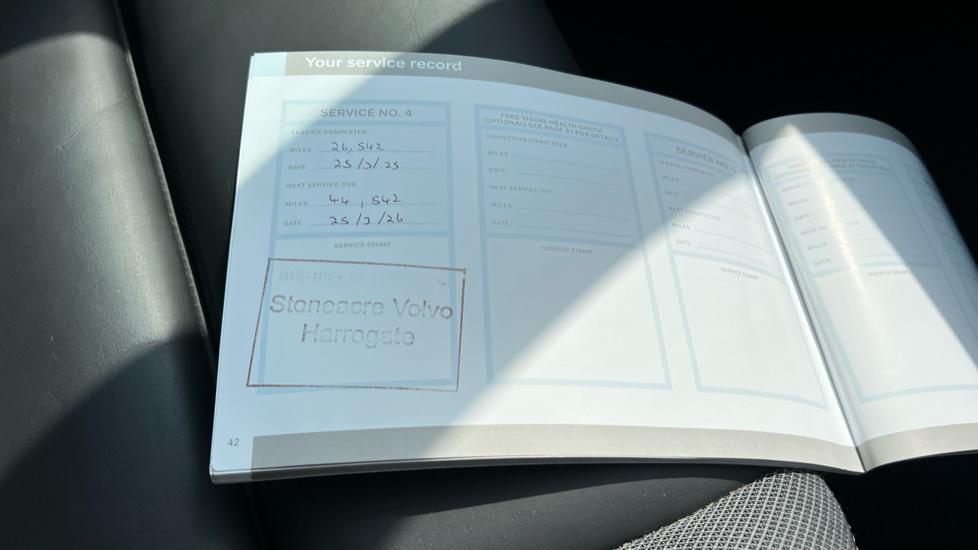 Your service record
SERVICE NO. 4
SERVICE COMPLETED
MILES 26,542
DATE 25/3/25
NEXT SERVICE DUE
MILES 44,542
DATE 25/3/26
SERVICE STAMP
Stoneacre Volvo
Harrogate
42
FREE VISUAL HEALTH CHECK
(OPTIONAL) SEE PAGE 37 FOR DETAILS
INSPECTION COMPLETED
MILES
DATE
NEXT SERVICE DUE
MILES
DATE
SERVICE STAMP
SERVICE NO.
SERVICE COMPLETED
MILES
DATE
NEXT SERVICE DUE
MILES
DATE
SERVICE STAMP
MILES
DATE
MILES
DATE
SERVICE STAMP